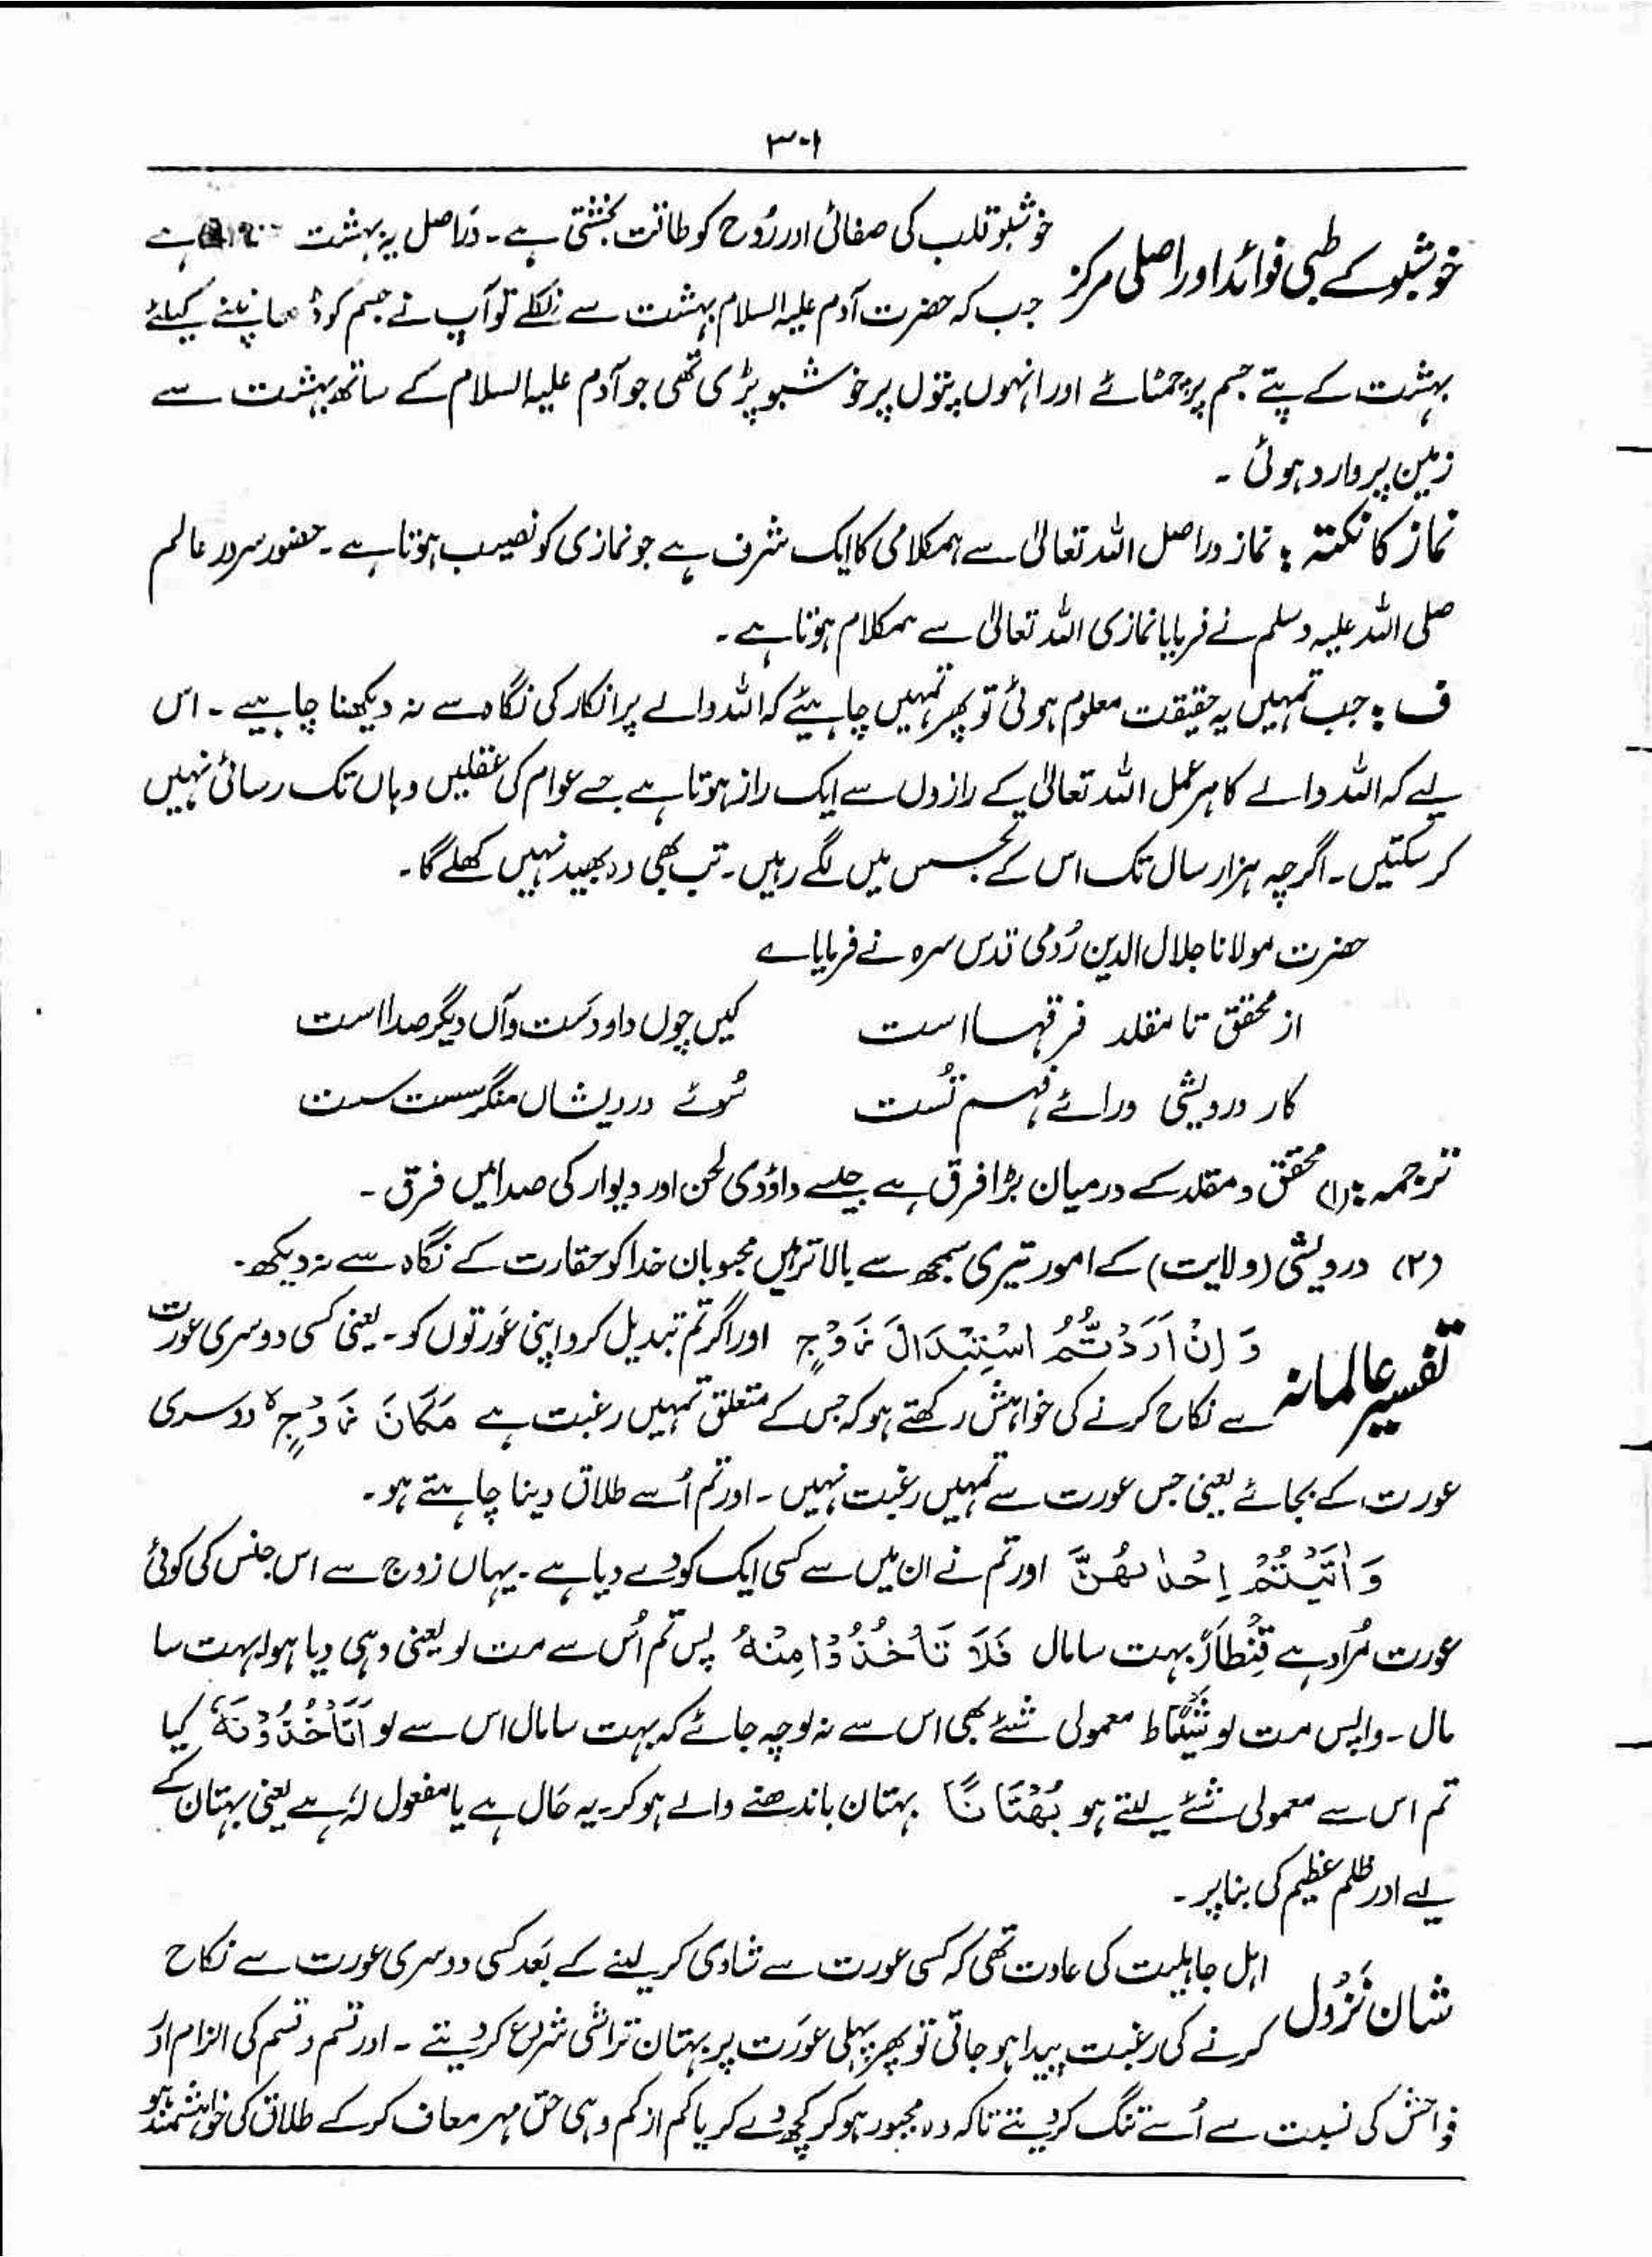 ۳۰۱
خوشبو کے طبی فوائد اور اصلی مرکز
خوشبو قلب کی صفائی اور رُوح کو طاقت بخشتی ہے۔ دَراصل یہ بہشت ہے
جب کہ حضرت آدم علیہ السلام بہشت سے نکلے تو آپ نے جسم کو ڈھانپنے کیلئے
بہشت کے پتے جسم پر چمٹائے اور انہوں پتوں پر خوشبو پڑی تھی جو آدم علیہ السلام کے ساتھ بہشت سے
زمین پر وارد ہوئی ۔
نماز کا نکتہ : نماز دراصل اللہ تعالیٰ سے ہمکلامی کا ایک شرف ہے جو نمازی کو نصیب ہوتا ہے ۔ حضور سرور عالم
صلی اللہ علیہ وسلم نے فرمایا نمازی اللہ تعالیٰ سے ہمکلام ہوتا ہے ۔
ف : جب تمہیں یہ حقیقت معلوم ہوئی تو پھر تمہیں چاہیئے کہ اللہ والے پر انکار کی نگاہ سے نہ دیکھنا چاہیے ۔ اس
لیے کہ اللہ والے کا ہر عمل اللہ تعالیٰ کے رازوں سے ایک راز ہوتا ہے جسے عوام کی عقلیں وہاں تک رسائی نہیں
کر سکتیں ۔ اگرچہ ہزار سال تک اس کے تجسس میں لگے رہیں ۔ تب بھی وہ بھید نہیں کھلے گا ۔
حضرت مولانا جلال الدین رُومی قدس سرہ نے فرمایا ے
از محقق تا مقلد فرقہا است کیں چوں داودست وآں دیگر صدا است
کار درویشی ورائے فہم تُست سُوئے درویشاں منگر سست سست
ترجمہ : (۱) محقق و مقلد کے درمیان بڑا فرق ہے جیسے داؤدی لحن اور دیوار کی صدا میں فرق ۔
(۲) درویشی (ولایت) کے امور تیری سمجھ سے بالا تر ہیں محبوبان خدا کو حقارت کے نگاہ سے نہ دیکھ ۔
تفسیر عالمانہ
وَ اِنْ اَرَدْتُّمُ اسْتِبْدَالَ زَوْجٍ اور اگر تم تبدیل کرو اپنی عَورتوں کو ۔ یعنی کسی دوسری عورت
سے نکاح کرنے کی خواہش رکھتے ہو کہ جس کے متعلق تمہیں رغبت ہے مَکَانَ زَوْجٍ دوسری
عورت کے بجائے یعنی جس عورت سے تمہیں رغبت نہیں ۔ اور تم اُسے طلاق دینا چاہتے ہو ۔
وَ اٰتَیْتُمْ اِحْدٰىهُنَّ اور تم نے ان میں سے کسی ایک کو دے دیا ہے ۔ یہاں زوج سے اس جنس کی کوئی
عورت مُراد ہے قِنْطَارًا بہت سا مال فَلَا تَاْخُذُوْا مِنْهُ پس تم اُس سے مت لو یعنی وہی دیا ہوا بہت سا
مال ۔ واپس مت لو شَیْئًا ط معمولی شئے بھی اس سے نہ لو چہ جائے کہ بہت سا مال اس سے لو اَتَاْخُذُوْنَهٗ کیا
تم اس سے معمولی شئے لیتے ہو بُهْتَانًا بہتان باندھنے والے ہو کر ۔ یہ حَال ہے یا مفعول لہٗ ہے یعنی بہتان کے
لیے اور ظلم عظیم کی بنا پر ۔
شان نُزول
اہل جاہلیت کی عادت تھی کہ کسی عورت سے شادی کر لینے کے بَعد کسی دوسری عورت سے نکاح
کرنے کی رغبت پیدا ہو جاتی تو پھر پہلی عوَرت پر بہتان تراشی شروع کر دیتے ۔ اور قسم و قسم کی الزام اور
فواحش کی نسبت سے اُسے تنگ کر دیتے تاکہ وہ مجبور ہو کر کچھ دے کر یا کم از کم وہی حق مہر معاف کر کے طلاق کی خواہشمند ہو